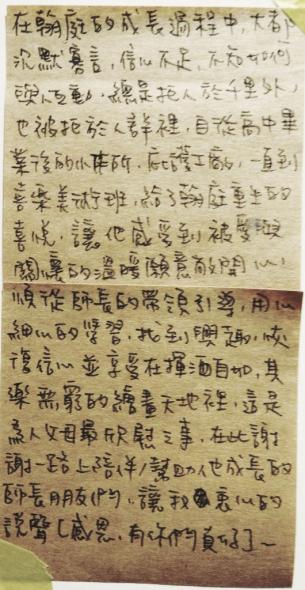 在翰庭的成長過程中,大都
沉默寡言,信心不足,不知如何
與人互動,總是拒人於千里外,
也被拒於人群裡,自從高中畢
業後的小作所,庇護工廠,一直到
喜樂美術班,給了翰庭重生的
喜悅,讓他感受到被愛被
關懷的溫暖願意敞開心,
順從師長的帶領引導,用心
細心的學習,找到興趣,恢
復信心並享受在揮洒自如,其
樂無窮的繪畫天地裡,這是
為人父母最欣慰之事,在此謝
謝一路上陪伴/幫助他成長的
師長朋友們,讓我衷心的
說聲[感恩,有你們真好]~